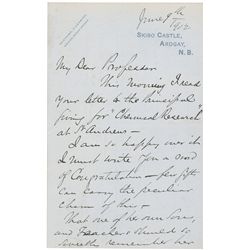 June 9th
1912
SKIBO CASTLE,
ARDGAY,
N.B.
My Dear Professor
This Morning I read
your letter to the Principal
giving for "Chemical Research"
at St Andrews —
I am so happy over it
I must write you a word
of Congratulation — few gifts
can carry the peculiar
charm of this —
That one of her Sons,
and Teachers should so
sweetly remember her